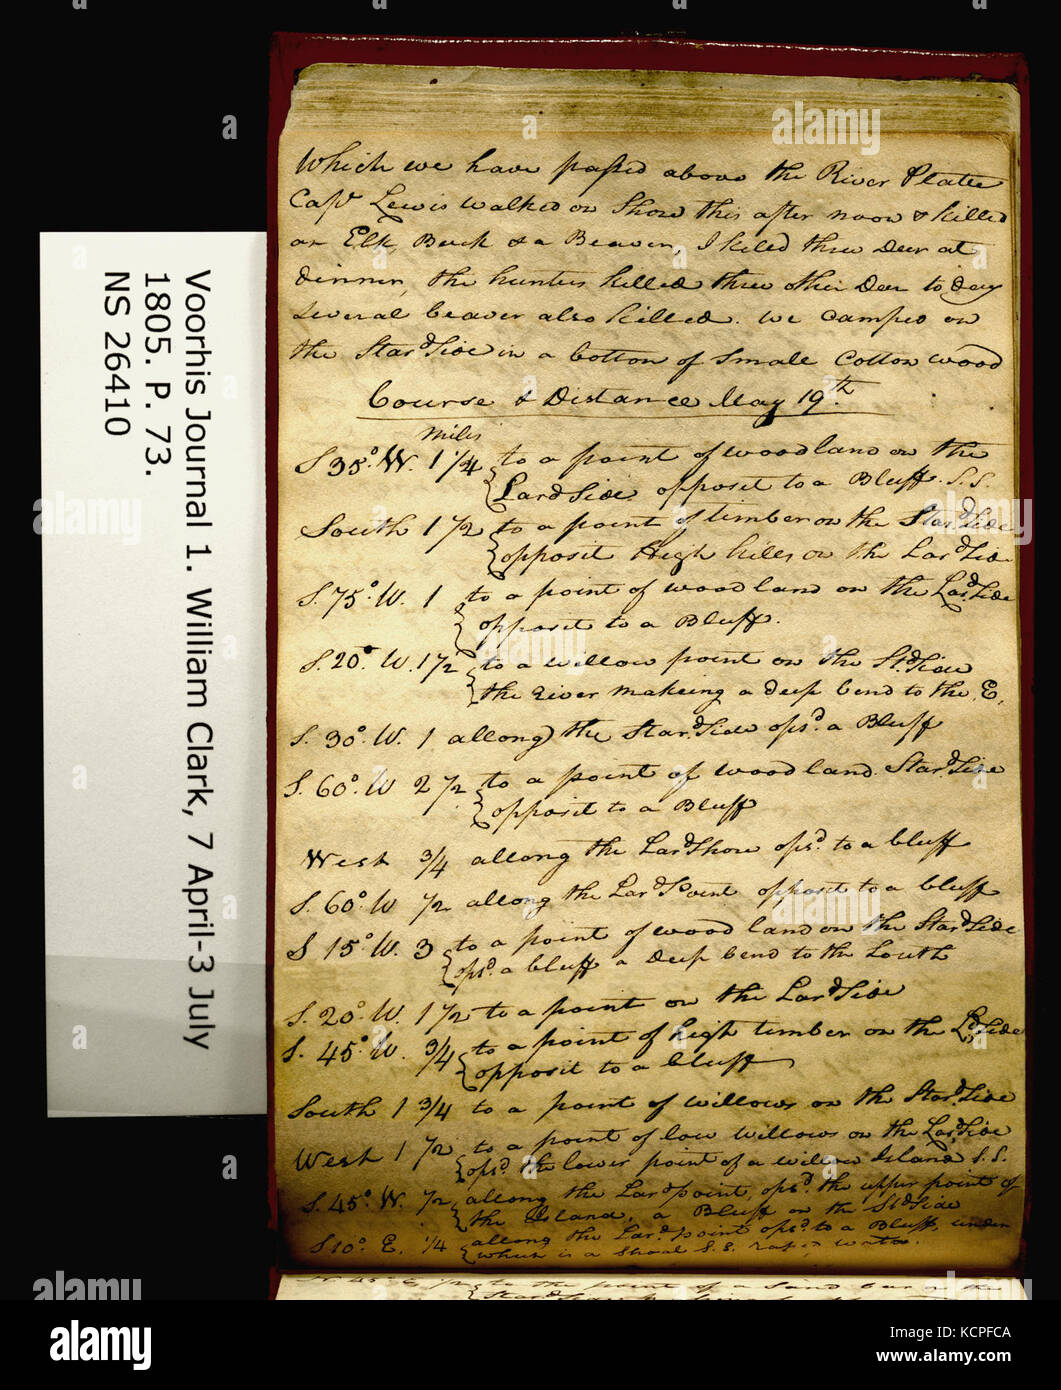 Which we have passed above the River Platte
Capt. Lewis walked on Shore this after noon & killed
an Elk, Buck & a Beaver, I kiled three Deer at
dinner, the hunters killed three other Deer to day
Several beaver also killed. we camped on
the Stard. Side in a bottom of Small Cotton wood
Course & Distance May 19th.
miles
S 35° W. 1 1/4 to a point of wood land on the
Lard Side opposit to a Bluff. S.S.
South 1 1/2 to a point of timber on the Stard. Side
opposit High hills on the Lard. Side
S. 75° W. 1 to a point of wood land on the Lard. Side
opposit to a Bluff.
S. 20° W. 1 1/2 to a willow point on the St.d. Side
the river makeing a deep bend to the E.
S. 30° W. 1 allong the Stard. Side opsd. a Bluff
S. 60° W 2 1/2 to a point of wood land Stard. Side
opposit to a Bluff
West 3/4 allong the Lard Shore opsd. to a bluff
S. 60° W 1/2 allong the Lard Point opposit to a bluff
S 15° W. 3 to a point of wood land on the Stard. Side
opsd. a bluff a deep bend to the South
S. 20° W. 1 1/2 to a point on the Lard. Side
S. 45° W. 3/4 to a point of high timber on the Ld. Side
opposit to a bluff
South 1 3/4 to a point of willows on the Stard. Side
West 1 1/2 to a point of low willows on the Lard. Side
opsd. the lower point of a willow Island S.S.
S. 45° W. 1/2 allong the Lard point, opsd. the upper point of
the Island, a Bluff on the Std. Side
S 10° E. 1/4 allong the Lard. point opsd. to a Bluff, under
which is a Shoal S.S. rapid water.
to the point of a Sand bar on the
Voorhis Journal 1. William Clark, 7 April-3 July
1805. P. 73.
NS 26410
alamy
a
Image ID: KCPFCA
www.alamy.com